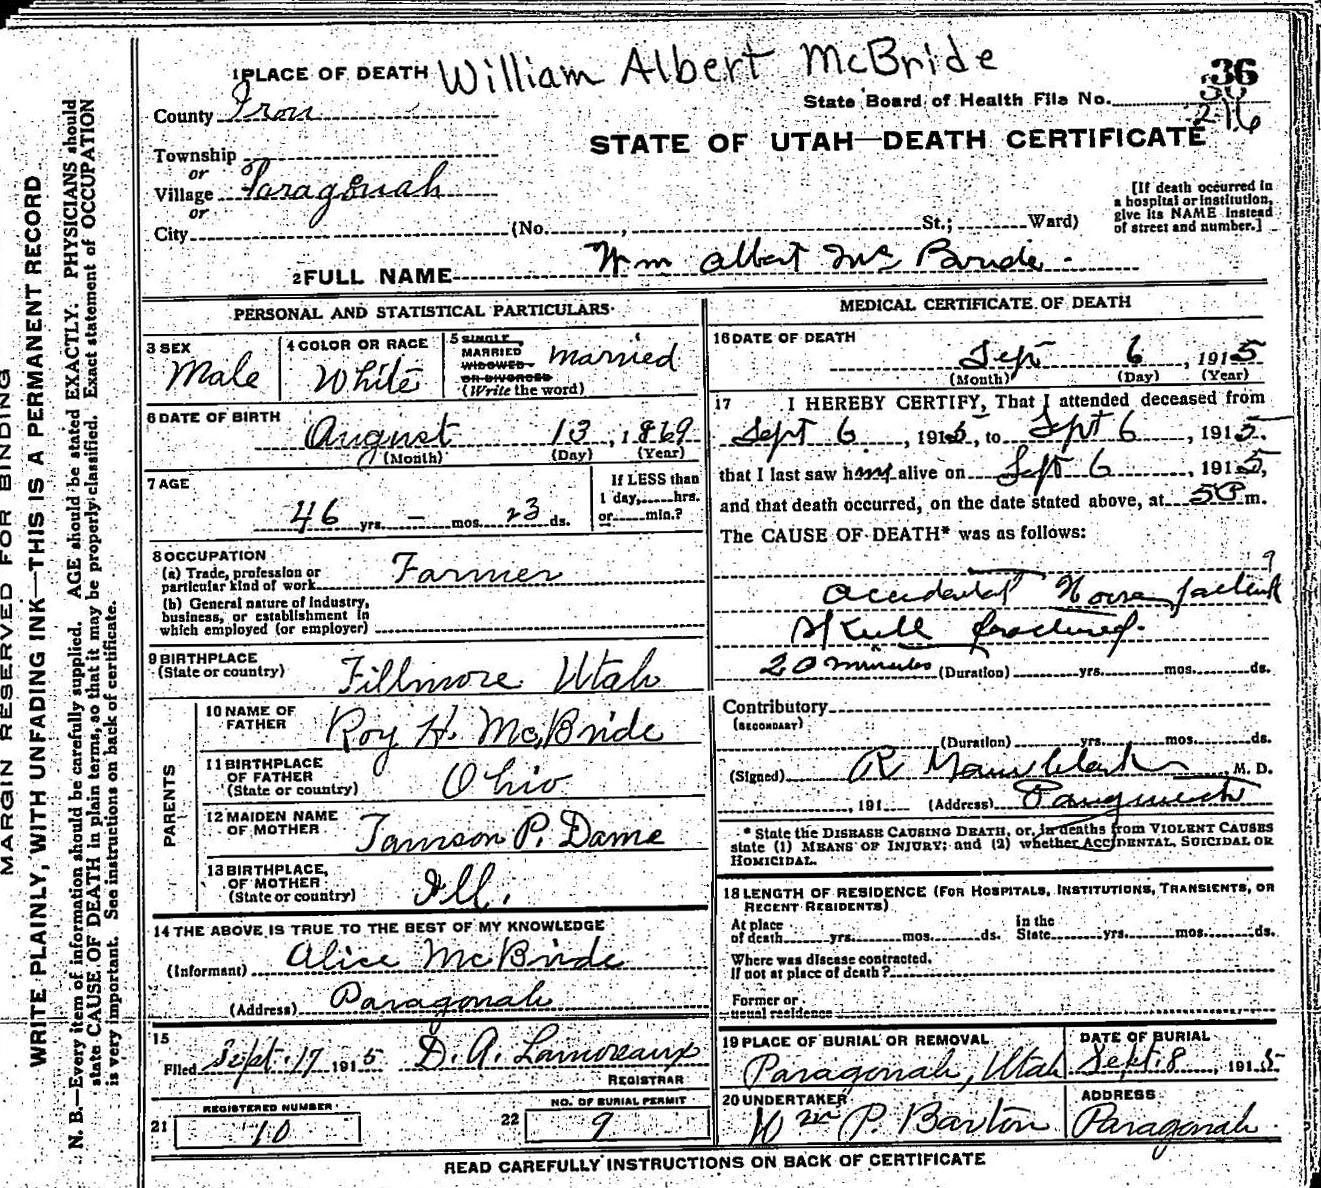 William Albert McBride
1 PLACE OF DEATH
36
State Board of Health File No. 216
County Iron
STATE OF UTAH—DEATH CERTIFICATE
Township
or
Village Paragonah
or
City (No. , St.; Ward)
[If death occurred in
a hospital or institution,
give its NAME instead
of street and number.]
2 FULL NAME Wm Albert McBride
PERSONAL AND STATISTICAL PARTICULARS
3 SEX
Male
4 COLOR OR RACE
White
5 SINGLE,
MARRIED
WIDOWED
OR DIVORCED
(Write the word)
Married
6 DATE OF BIRTH
August 13, 1869
(Month) (Day) (Year)
7 AGE
46 yrs. – mos. 23 ds.
If LESS than
1 day, hrs.
or min.?
8 OCCUPATION
(a) Trade, profession or
particular kind of work Farmer
(b) General nature of industry,
business, or establishment in
which employed (or employer)
9 BIRTHPLACE
(State or country) Fillmore Utah
PARENTS
10 NAME OF
FATHER Roy H. McBride
11 BIRTHPLACE
OF FATHER
(State or country) Ohio
12 MAIDEN NAME
OF MOTHER Tamson P. Dame
13 BIRTHPLACE,
OF MOTHER
(State or country) Ill.
14 THE ABOVE IS TRUE TO THE BEST OF MY KNOWLEDGE
(Informant) Alice McBride
(Address) Paragonah
15
Filed Sept. 17 1915 D. A. Lamoreaux
REGISTRAR
21 REGISTERED NUMBER
10
22 NO. OF BURIAL PERMIT
9
MEDICAL CERTIFICATE OF DEATH
16 DATE OF DEATH
Sept 6, 1915
(Month) (Day) (Year)
17 I HEREBY CERTIFY, That I attended deceased from
Sept 6, 1915, to Sept 6, 1915.
that I last saw him alive on Sept 6, 1915,
and that death occurred, on the date stated above, at 5 P m.
The CAUSE OF DEATH* was as follows:
Accidental Horse
Skull fractured.
20 minutes (Duration) yrs. mos. ds.
Contributory
(SECONDARY)
(Duration) yrs. mos. ds.
(Signed) R Clark M. D.
, 191 (Address)
* State the DISEASE CAUSING DEATH, or, in deaths from VIOLENT CAUSES
state (1) MEANS OF INJURY; and (2) whether ACCIDENTAL, SUICIDAL OR
HOMICIDAL.
18 LENGTH OF RESIDENCE (FOR HOSPITALS, INSTITUTIONS, TRANSIENTS, OR
RECENT RESIDENTS)
At place
of death yrs. mos. ds.
In the
State yrs. mos. ds.
Where was disease contracted.
If not at place of death?
Former or
usual residence
19 PLACE OF BURIAL OR REMOVAL
Paragonah, Utah
DATE OF BURIAL
Sept. 8, 1915
20 UNDERTAKER
Wm P. Barton
ADDRESS
Paragonah
READ CAREFULLY INSTRUCTIONS ON BACK OF CERTIFICATE
MARGIN RESERVED FOR BINDING
WRITE PLAINLY, WITH UNFADING INK—THIS IS A PERMANENT RECORD
N. B.—Every item of information should be carefully supplied. AGE should be stated EXACTLY. PHYSICIANS should
state CAUSE OF DEATH in plain terms, so that it may be properly classified. Exact statement of OCCUPATION
is very important. See instructions on back of certificate.